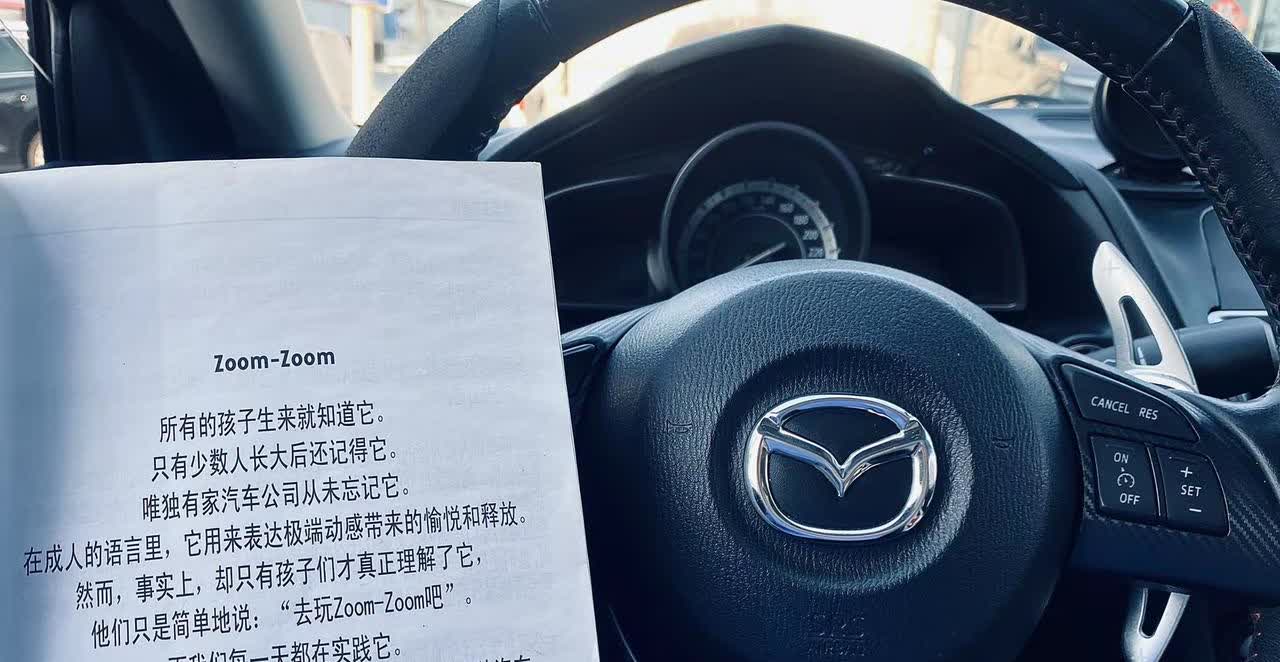 Zoom-Zoom
所有的孩子生来就知道它。
只有少数人长大后还记得它。
唯独有家汽车公司从未忘记它。
在成人的语言里，它用来表达极端动感带来的愉悦和释放。
然而，事实上，却只有孩子们才真正理解了它，
他们只是简单地说：“去玩Zoom-Zoom吧”。
而我们每一天都在实践它。
160
180
200
220
CANCEL RES
ON
OFF
+
SET
−
SRS
AIRBAG